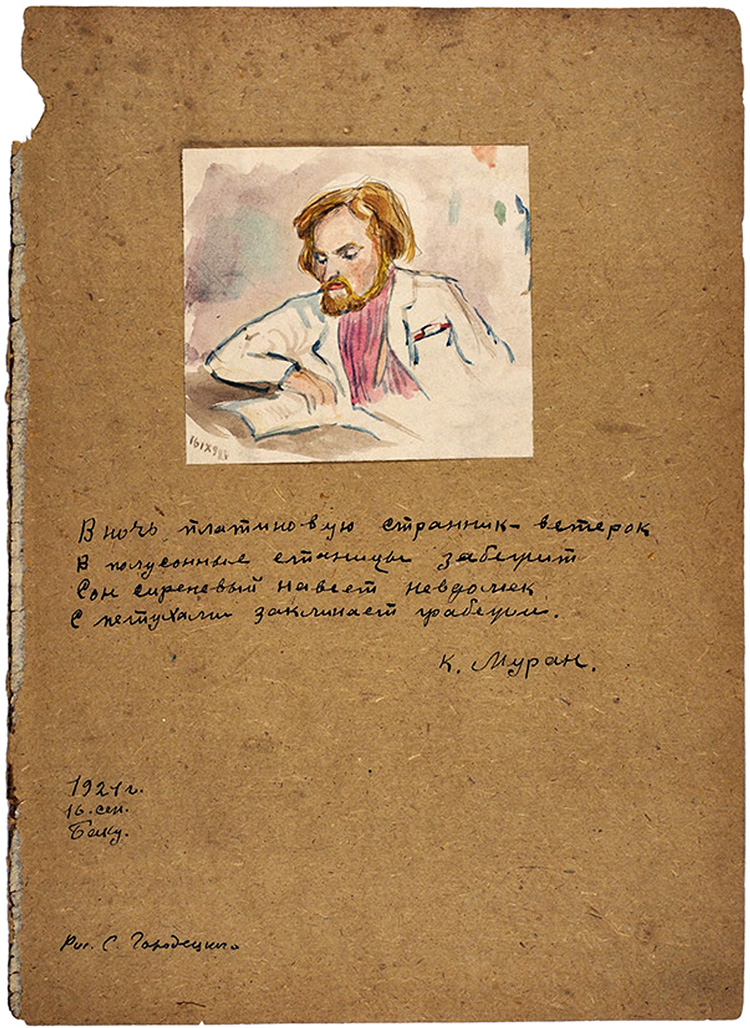 16 IX 921
В ночь платиновую странник-ветерок
В полусонные станицы забегит
Сон сиреневый навеет невдолек
С петухами заклинает
К. Муран.
1921 г.
16. сен.
Баку.
Рис. С. Городецкого